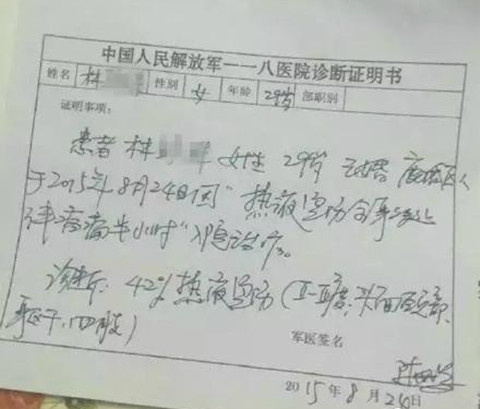 中国人民解放军一一八医院诊断证明书
姓名 林 性别 女 年龄 29岁 部职别
证明事项:
患者林 女性 29岁 已婚
于2015年8月24日因"热液烫伤全身多处
伴疼痛半小时"入院治疗。
诊断: 42%热液烫伤(II-III度,头面颈部、
躯干、四肢)
军医签名
2015年8月24日